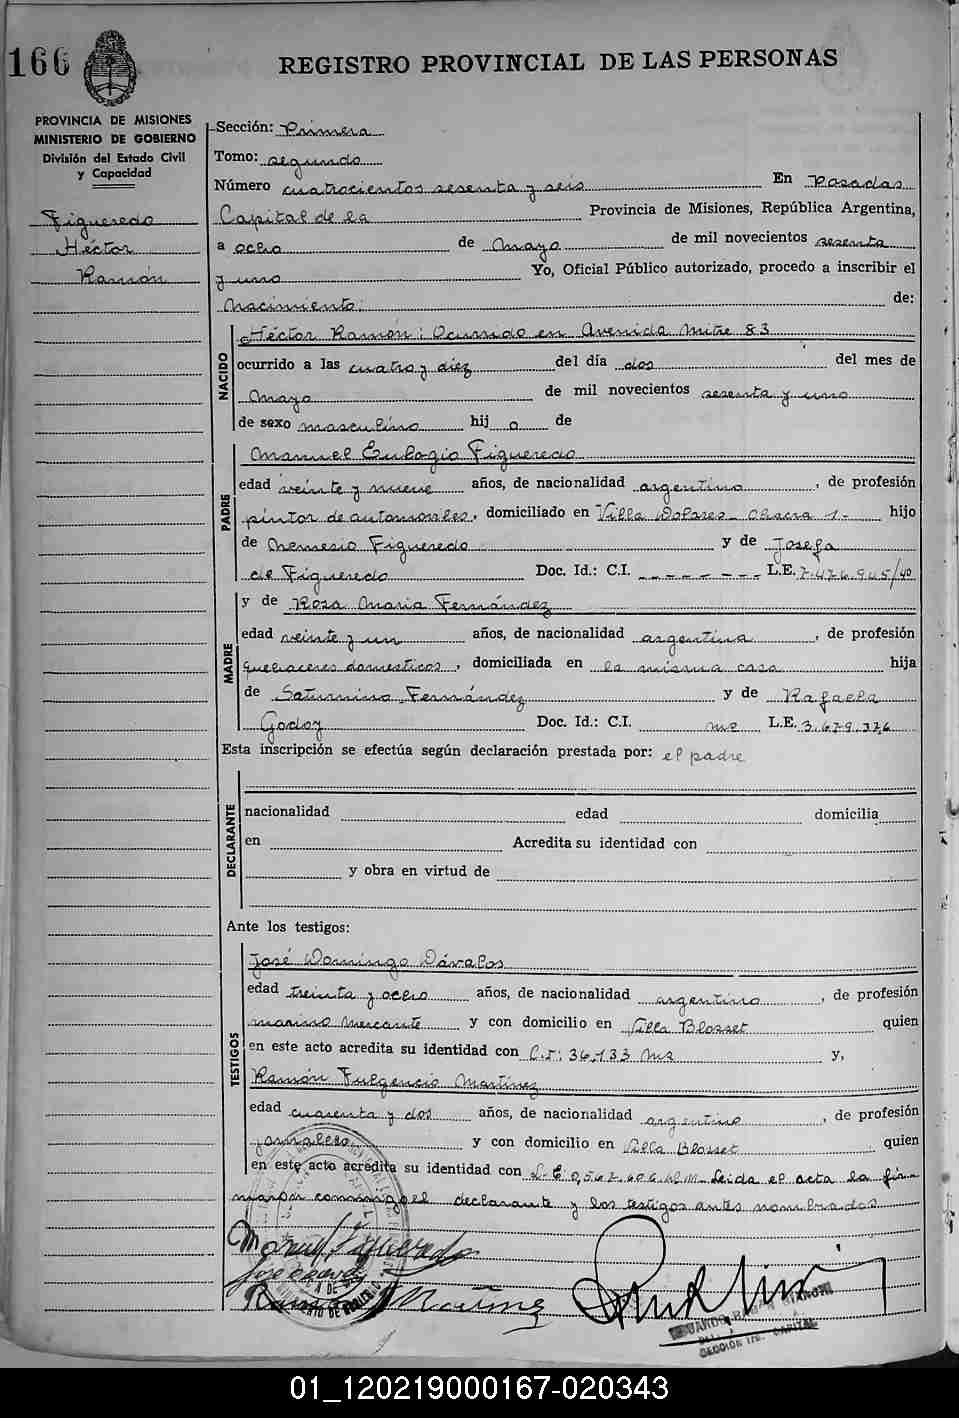 166
REGISTRO PROVINCIAL DE LAS PERSONAS
PROVINCIA DE MISIONES
MINISTERIO DE GOBIERNO
División del Estado Civil
y Capacidad
Figueredo
Héctor
Ramón
Sección: Primera
Tomo: segundo
Número cuatrocientos sesenta y seis En Posadas
Capital de la Provincia de Misiones, República Argentina,
a ocho de Mayo de mil novecientos sesenta
y uno Yo, Oficial Público autorizado, procedo a inscribir el
Nacimiento: de:
NACIDO
Héctor Ramón: Ocurrido en Avenida Mitre 83
ocurrido a las cuatro y diez del día dos del mes de
Mayo de mil novecientos sesenta y uno
de sexo masculino hij o de
PADRE
Manuel Eulogio Figueredo
edad veinte y nueve años, de nacionalidad argentino, de profesión
pintor de automoviles, domiciliado en Villa Dolores - Chacra 1- hijo
de Nemesio Figueredo y de Josefa
de Figueredo Doc. Id.: C.I. - - - - - - - L.E. 7.476.945/40
MADRE
y de Rosa Maria Fernández
edad veinte y un años, de nacionalidad argentina, de profesión
quehaceres domesticos, domiciliada en la misma casa hija
de Saturnino Fernández y de Rafaela
Godoy Doc. Id.: C.I. L.E. 3.679.376
Esta inscripción se efectúa según declaración prestada por: el padre
DECLARANTE
nacionalidad edad domicilia
en Acredita su identidad con
y obra en virtud de
Ante los testigos:
TESTIGOS
José Domingo Dávalos
edad treinta y ocho años, de nacionalidad argentino, de profesión
marino mercante y con domicilio en Villa Blosset quien
en este acto acredita su identidad con C.I: 36.133 Ms y,
Ramón Fulgencio Martínez
edad cuarenta y dos años, de nacionalidad argentino, de profesión
jornalero y con domicilio en Villa Blosset quien
en este acto acredita su identidad con L.E. Leida el acta la fir-
maron conmigo el declarante y los testigos antes nombrados
Manuel Figueredo
SECCION 1ra. CAPITAL
01_120219000167-020343